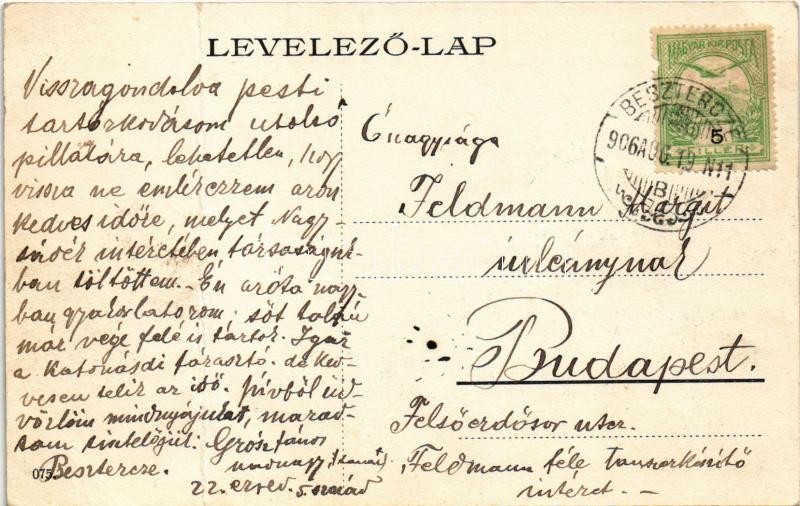 LEVELEZŐ-LAP
MAGYAR KIR. POSTA
5
FILLÉR
BESZTERCZE
906 AUG 19 N11
B
Visszagondolva pesti
tartózkodásom utolsó
pillátára, lehetetlen, hogy
vissza ne emlékezzem azon
kedves időre, melyet Nagy-
sádék intézetében társaságuk-
ban töltöttem. - Én azóta nagy-
ban gyakorlatozom. sőt talán
már vége felé is tartok. Igaz
a katonásdi fárasztó. de ked-
vesen telik az idő. Szívből üd-
vözlöm mindnyájukat, marad-
tam tisztelőjük. Grósz János
Besztercze.
22. ezred. 5. század
075
Őnagysága
Feldmann Margit
úrleánynak
Budapest.
Felsőerdősor utcz.
Feldmann féle tanszerkészítő
intézet. -